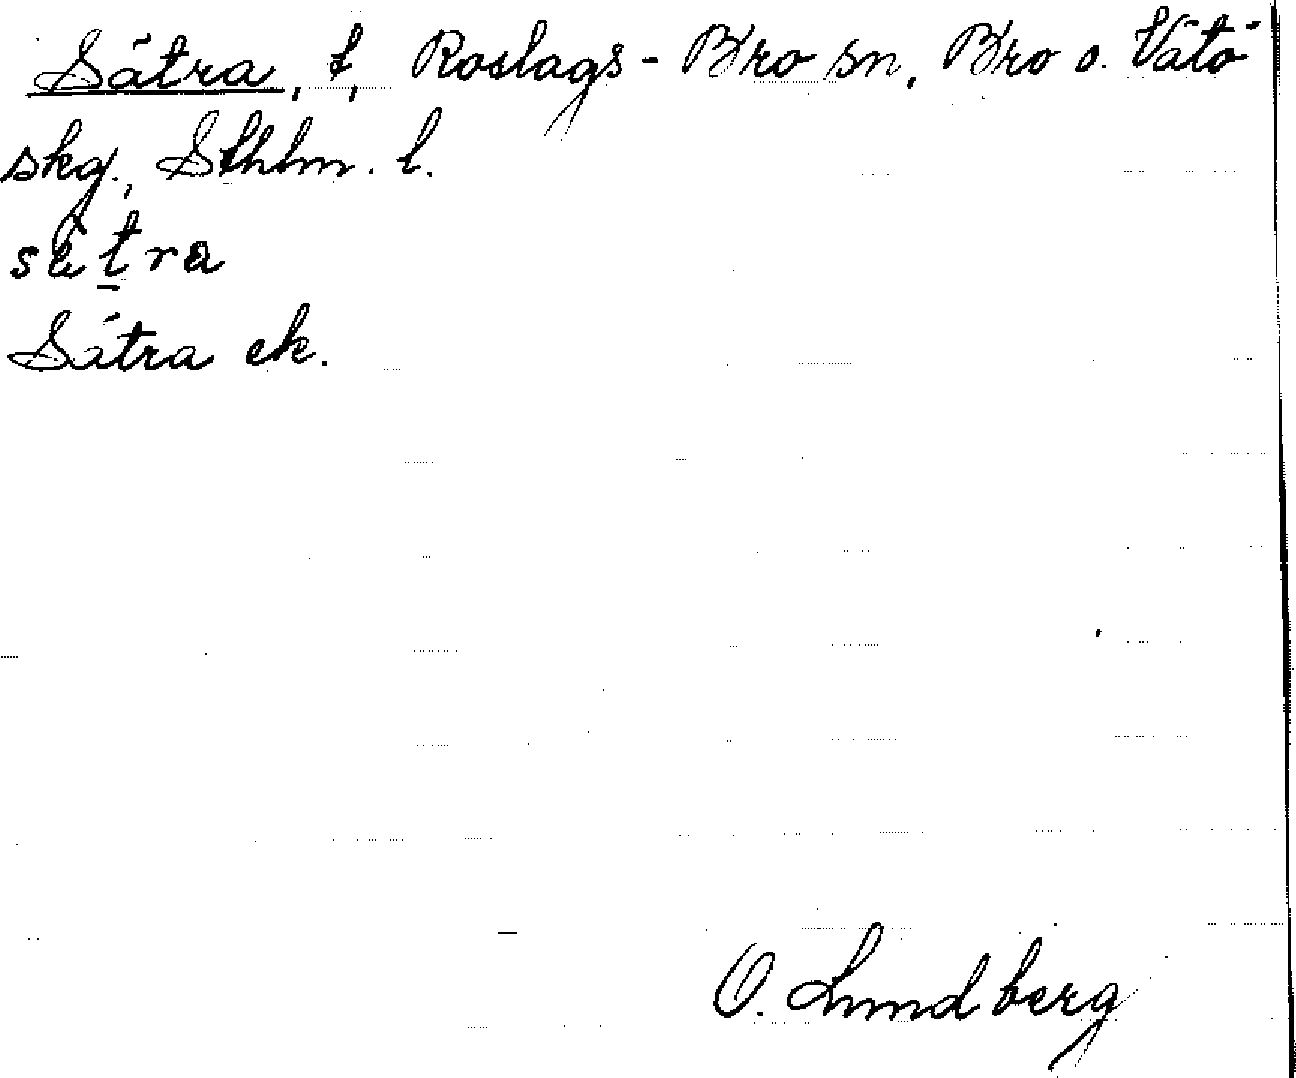 Sätra, t, Roslags-Bro sn, Bro o. Vätö
skg., Sthlm. l.
sätra
Sätra ek.
O. Lundberg